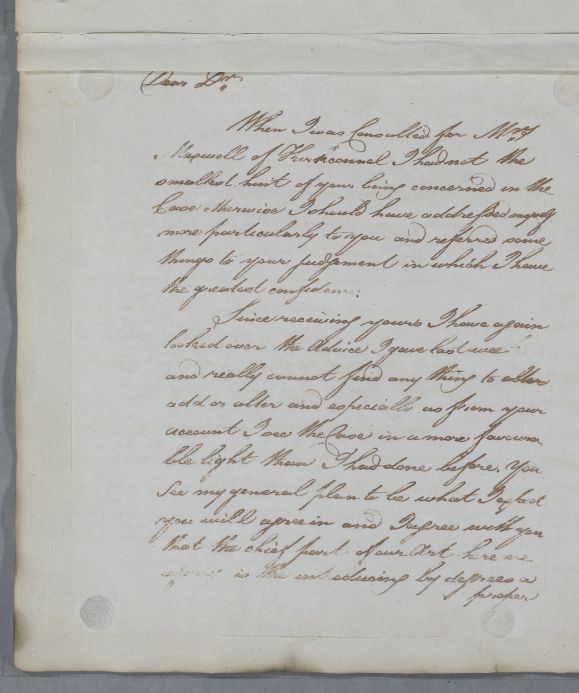 Dear Dr.
When I was Consulted for Mrs
Maxwell of Kirkconnel I had not the
smallest hint of your being concerned in the
Case otherwise I should have addressed myself
more particularly to you and referred some
things to your judgement in which I have
the greatest confidence.
Since receiving yours I have again
looked over the Advice I gave last week
and really cannot find any thing to alter
add or alter and especially as from your
account I see the Case in a more favoura
ble light than I had done before. You
See my general plan to be what I expect
you will agree in and I agree with you
that the chief part of our Art here
is the introducing by degrees a
proper